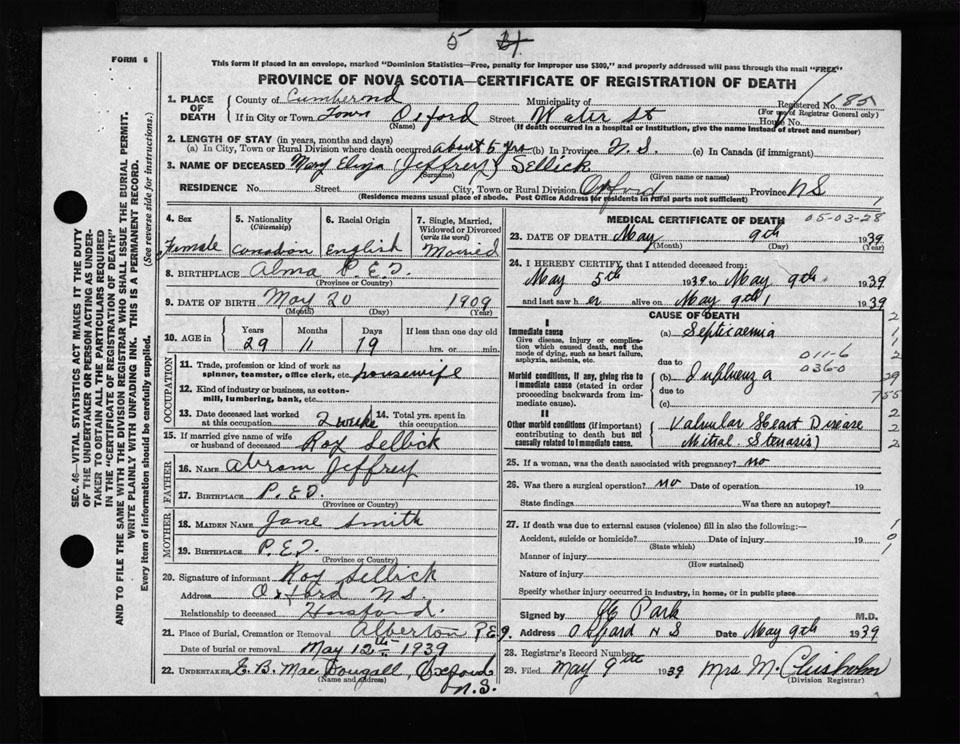 5 21
FORM 6
This form if placed in an envelope, marked "Dominion Statistics—Free, penalty for improper use $300," and properly addressed will pass through the mail "FREE"
PROVINCE OF NOVA SCOTIA—CERTIFICATE OF REGISTRATION OF DEATH
1. PLACE OF DEATH { County of Cumberond Municipality of Registered No. 185
(For use of Registrar General only)
If in City or Town Town Oxford Street Water St House No.
(Name) (If death occurred in a hospital or institution, give the name instead of street and number)
2. LENGTH OF STAY (in years, months and days)
(a) In City, Town or Rural Division where death occurred about 5 yrs (b) In Province N.S. (c) In Canada (if immigrant)
3. NAME OF DECEASED Mary Eliza (Jeffrey) Sellick
(Surname) (Given name or names)
RESIDENCE No. Street City, Town or Rural Division Oxford Province NS
(Residence means usual place of abode. Post Office Address for residents in rural parts not sufficient)
4. Sex 5. Nationality (Citizenship) 6. Racial Origin 7. Single, Married, Widowed or Divorced (write the word)
Female Canadian English Married
8. BIRTHPLACE Alma P.E.I.
(Province or Country)
9. DATE OF BIRTH May 20 1909
(Month) (Day) (Year)
10. AGE in Years Months Days If less than one day old
29 11 19 hrs. or min.
OCCUPATION
11. Trade, profession or kind of work as spinner, teamster, office clerk, etc. housewife
12. Kind of industry or business, as cotton-mill, lumbering, bank, etc.
13. Date deceased last worked at this occupation 2 weeks 14. Total yrs. spent in this occupation
15. If married give name of wife or husband of deceased Roy Sellick
FATHER
16. NAME Abram Jeffrey
17. BIRTHPLACE P.E.I.
(Province or Country)
MOTHER
18. MAIDEN NAME Jane Smith
19. BIRTHPLACE P.E.I.
(Province or Country)
20. Signature of informant Roy Sellick
Address Oxford N.S.
Relationship to deceased Husband.
21. Place of Burial, Cremation or Removal Alberton P.E.I.
Date of burial or removal May 12th 1939
22. UNDERTAKER E. B. MacDougall, Oxford N.S.
(Name and address)
MEDICAL CERTIFICATE OF DEATH 05-03-28
23. DATE OF DEATH May 9th 1939
(Month) (Day) (Year)
24. I HEREBY CERTIFY, that I attended deceased from:
May 5th 1939 to May 9th 1939
and last saw h er alive on May 9th 1939
CAUSE OF DEATH
I
Immediate cause (a) Septicaemia
Give disease, injury or complication which caused death, not the mode of dying, such as heart failure, asphyxia, asthenia, etc.
due to 011-6
036-0
Morbid conditions, if any, giving rise to immediate cause (stated in order proceeding backwards from immediate cause). (b) Influenza
due to
(c)
II
Other morbid conditions (if important) contributing to death but not causally related to immediate cause. Valvular Heart Disease
Mitral Stenosis)
25. If a woman, was the death associated with pregnancy? no
26. Was there a surgical operation? no Date of operation 19
State findings Was there an autopsy?
27. If death was due to external causes (violence) fill in also the following:—
Accident, suicide or homicide? Date of injury 19
(State which)
Manner of injury
(How sustained)
Nature of injury
Specify whether injury occurred in industry, in home, or in public place
Signed by Park M.D.
Address Oxford N S Date May 9th 1939
28. Registrar's Record Number
29. Filed May 9th 1939 Mrs M. Chisholm
(Division Registrar)
SEC. 46—VITAL STATISTICS ACT MAKES IT THE DUTY
OF THE UNDERTAKER OR PERSON ACTING AS UNDER-
TAKER TO OBTAIN ALL THE PARTICULARS REQUIRED
IN THE "CERTIFICATE OF REGISTRATION OF DEATH"
AND TO FILE THE SAME WITH THE DIVISION REGISTRAR WHO SHALL ISSUE THE BURIAL PERMIT.
WRITE PLAINLY WITH UNFADING INK. THIS IS A PERMANENT RECORD.
Every item of information should be carefully supplied. (See reverse side for instructions.)